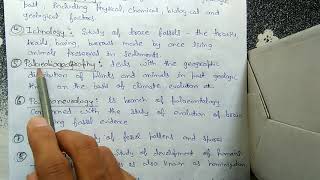 past, including physical, chemical, biological and
geological factors
④ Ichnology : Study of trace fossils - the tracks
trails, burrows made by once living
animals preserved in sediments
⑤ Palaeobiogeography : Deals with the geographic
distribution of plants and animals in past geologic
on the basis of climatic evolution etc
⑥ : Is branch of palaeontology
concerned with the study of evolution of brain
using fossil evidence
⑦ of fossil pollens and spores
⑧ Study of development of humans
is also known as